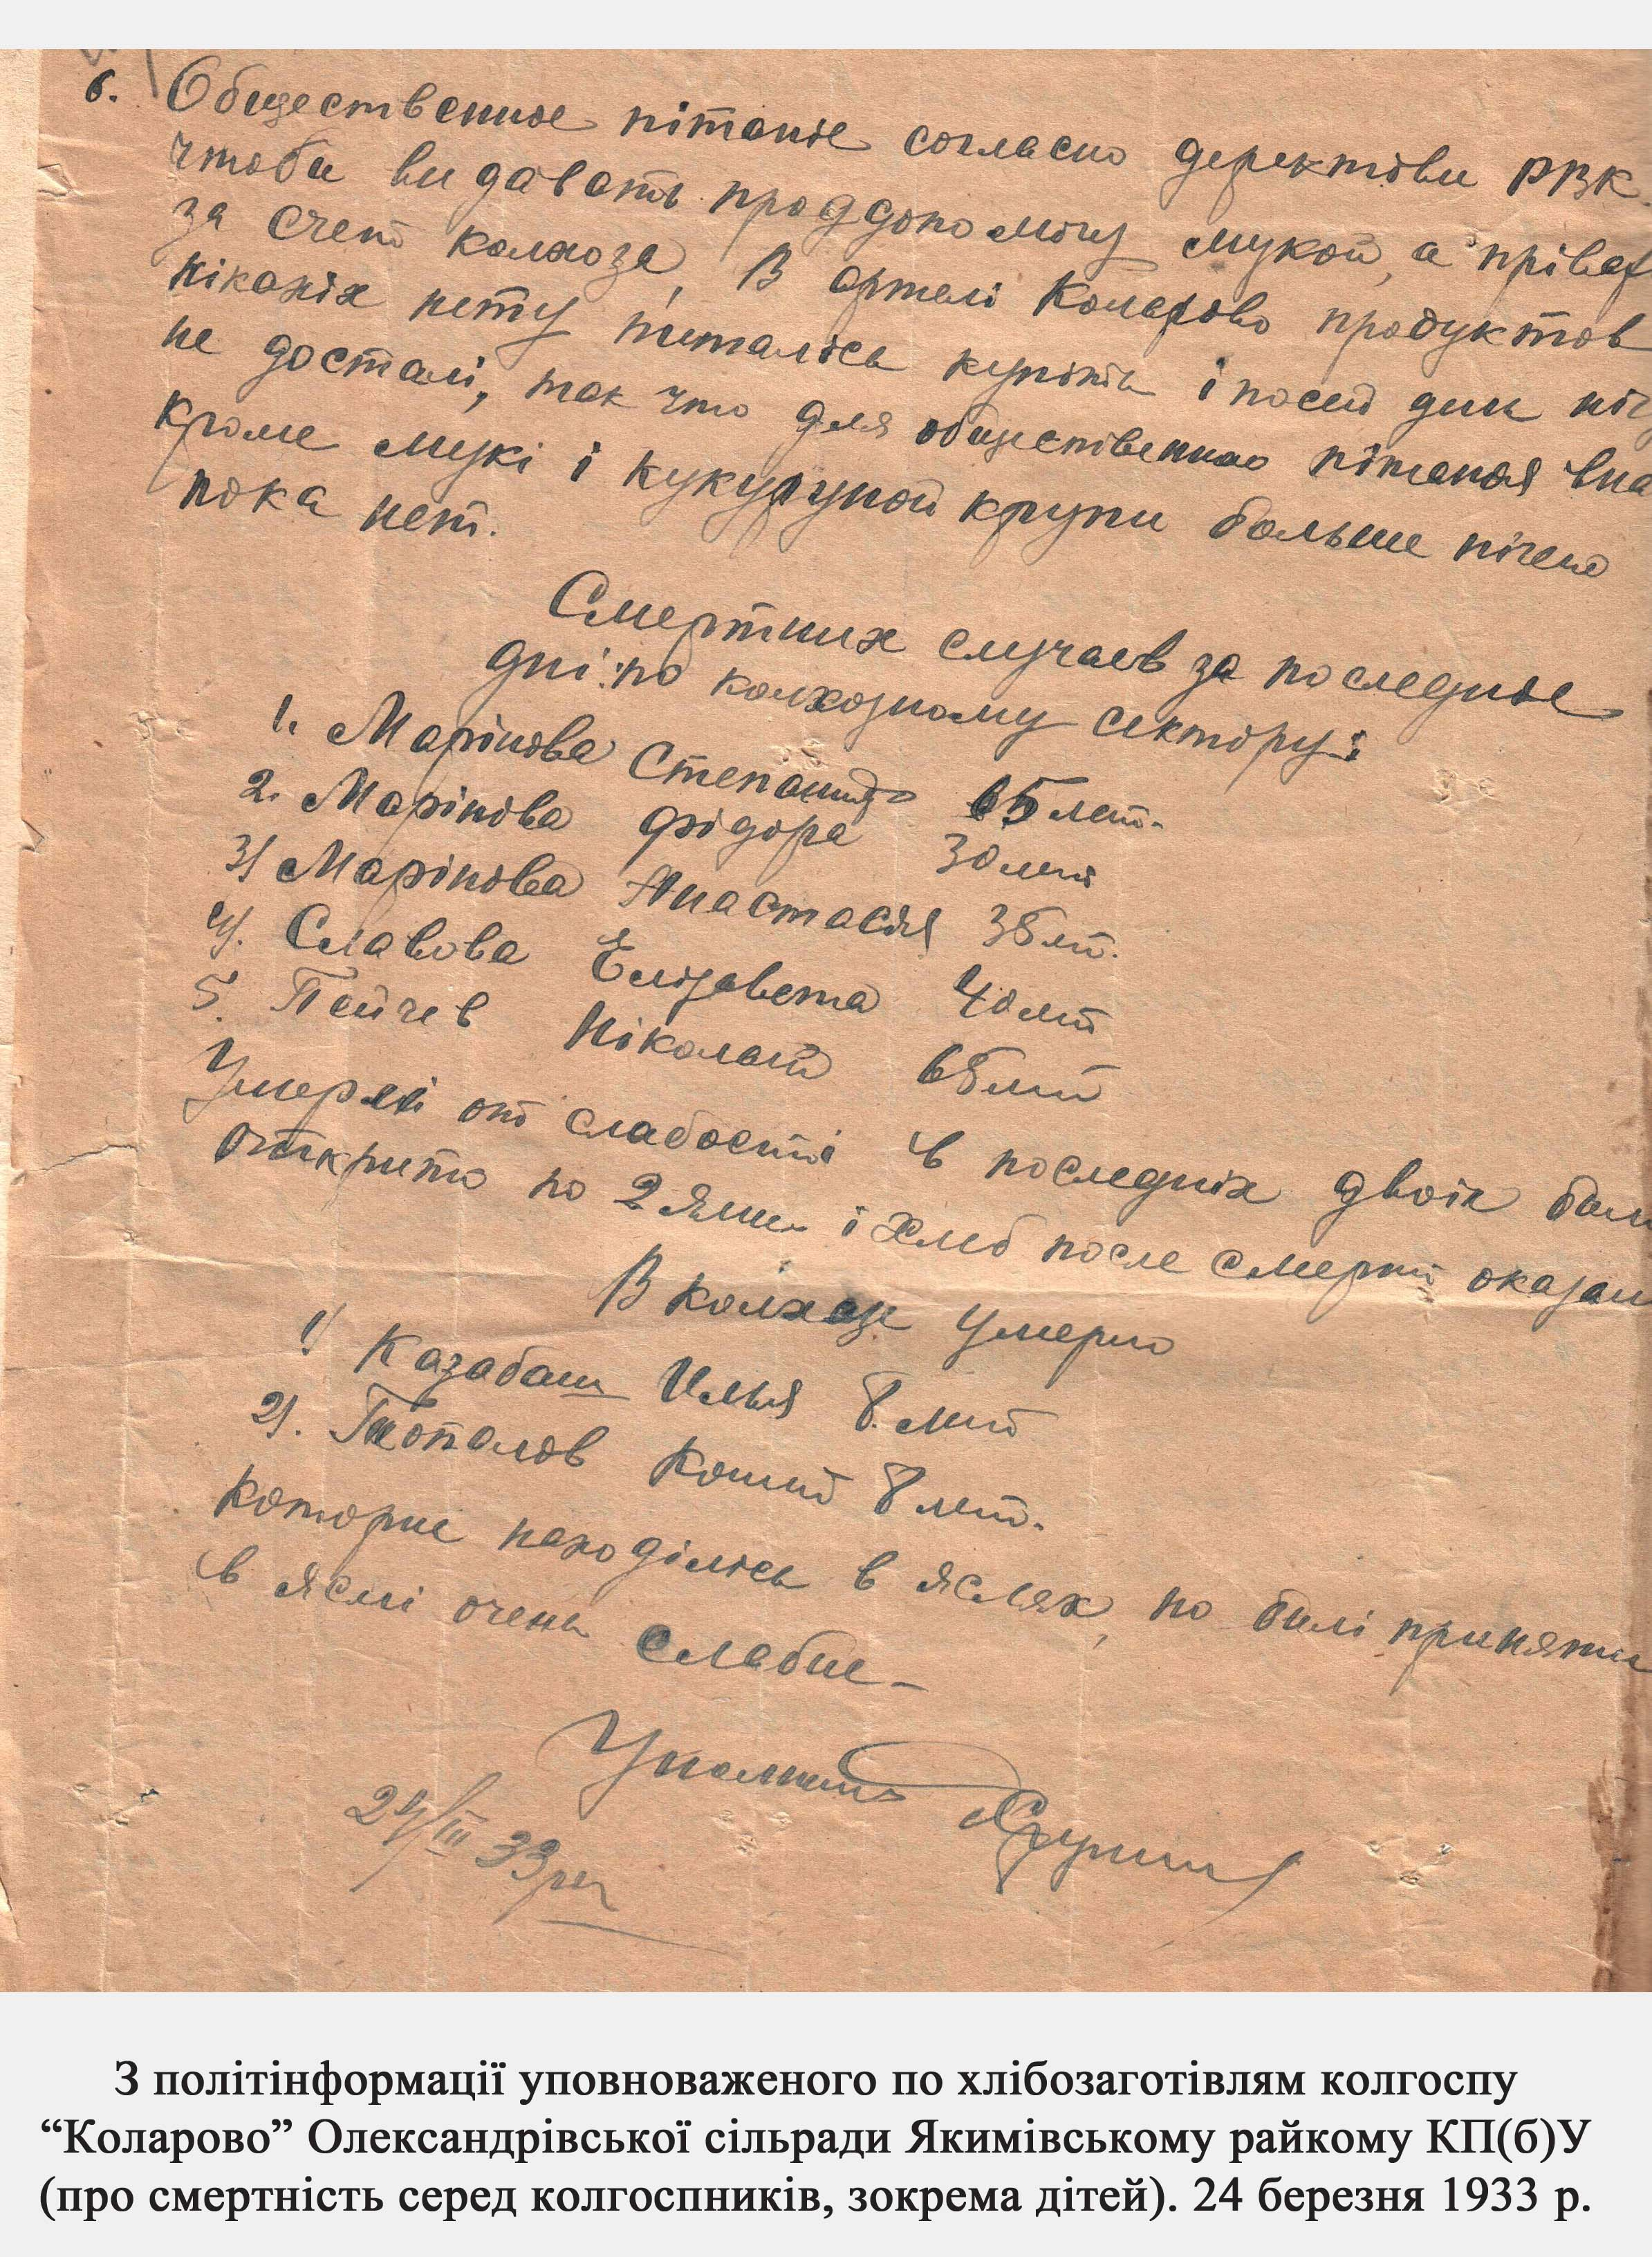 6. Общественное пітаніе согласно деректіви РВК.
чтоби видавать проддопомогу мукой, а прівар
за счет колхоза, В артелі Коларово продуктов
нікакіх нету питалісь купіть і посей ден ніч
не досталі, так что для общественнао пітанія
кроме мукі і кукурузной крупи больше нічего
пока нет.
Смертних случаев за последніе
дні по колхозному сектору:
1. Марінова Степанида 65 лет.
2. Марінова Фідора 30 лет
3) Марінова Анастасія 35 лет.
4). Славова Елізавета 40 лет
5. Пейчев Ніколай 65 лет
Умерлі от слабості в последніх двоіх бил
открито по 2 ями і хлеб после смерті оказал
В колхозе умерло
1) Казабаш Илья 8 лет
2). Топалов 8 лет.
которие находілісь в яслях, но билі приняти
в яслі очень слабие
24/III 33
З політінформації уповноваженого по хлібозаготівлям колгоспу
“Коларово” Олександрівської сільради Якимівському райкому КП(б)У
(про смертність серед колгоспників, зокрема дітей). 24 березня 1933 р.